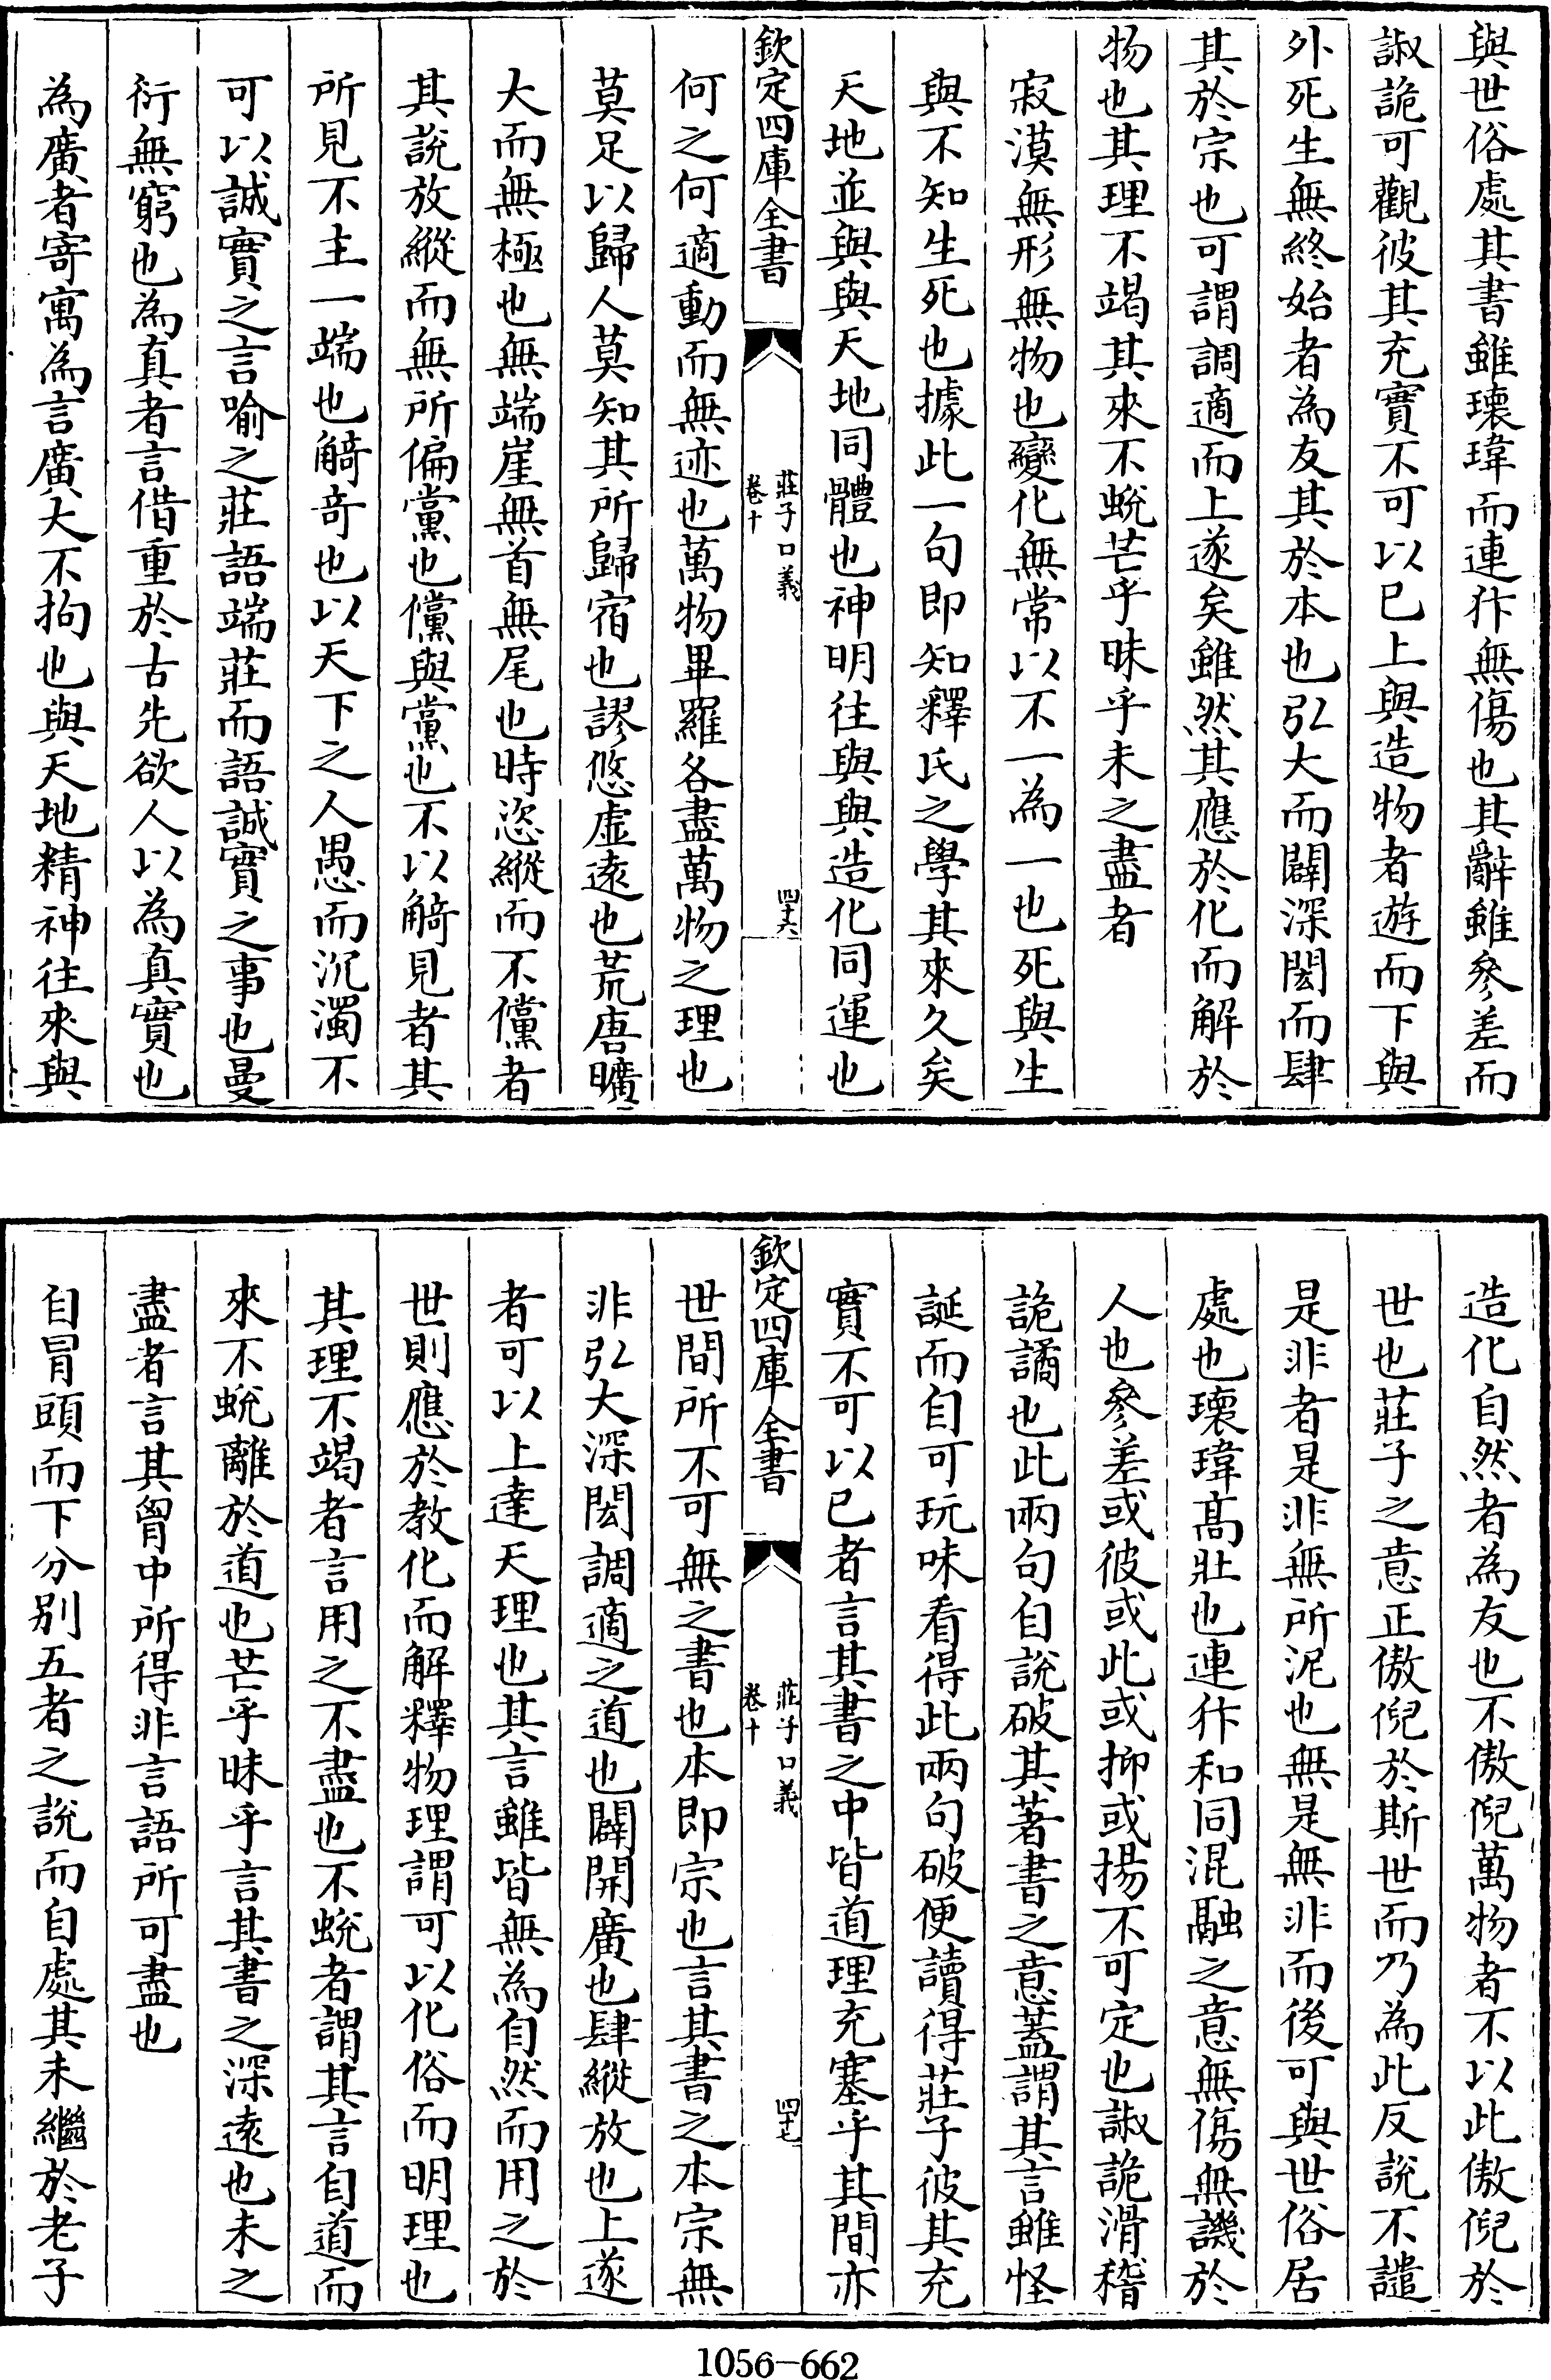 與世俗處其書雖瓌瑋而連犿無傷也其辭雖參差而
諔詭可觀彼其充實不可以已上與造物者遊而下與
外死生無終始者為友其於本也弘大而闢深閎而肆
其於宗也可謂調適而上遂矣雖然其應於化而解於
物也其理不竭其來不蛻芒乎昧乎未之盡者
寂漠無形無物也變化無常以不一為一也死與生
與不知生死也據此一句即知釋氏之學其來久矣
天地並與與天地同體也神明往與與造化同運也
欽定四庫全書
莊子口義
卷十
四十六
何之何適動而無迹也萬物畢羅各盡萬物之理也
莫足以歸人莫知其所歸宿也謬悠虛遠也荒唐曠
大而無極也無端崖無首無尾也時恣縱而不儻者
其說放縱而無所偏黨也儻與黨也不以觭見者其
所見不主一端也觭奇也以天下之人愚而沉濁不
可以誠實之言喻之莊語端莊而語誠實之事也曼
衍無窮也為真者言借重於古先欲人以為真實也
為廣者寄寓為言廣大不拘也與天地精神往來與
造化自然者為友也不傲倪萬物者不以此傲倪於
世也莊子之意正傲倪於斯世而乃為此反說不譴
是非者是非無所泥也無是無非而後可與世俗居
處也瓌瑋高壯也連犿和同混融之意無傷無譏於
人也參差或彼或此或抑或揚不可定也諔詭滑稽
詭譎也此兩句自說破其著書之意蓋謂其言雖怪
誕而自可玩味看得此兩句破便讀得莊子彼其充
實不可以已者言其書之中皆道理充塞乎其間亦
欽定四庫全書
莊子口義
卷十
四十七
世間所不可無之書也本即宗也言其書之本宗無
非弘大深閎調適之道也闢開廣也肆縱放也上遂
者可以上達天理也其言雖皆無為自然而用之於
世則應於教化而解釋物理謂可以化俗而明理也
其理不竭者言用之不盡也不蛻者謂其言自道而
來不蛻離於道也芒乎昧乎言其書之深遠也未之
盡者言其胷中所得非言語所可盡也
自冒頭而下分別五者之說而自處其未繼於老子
1056-662